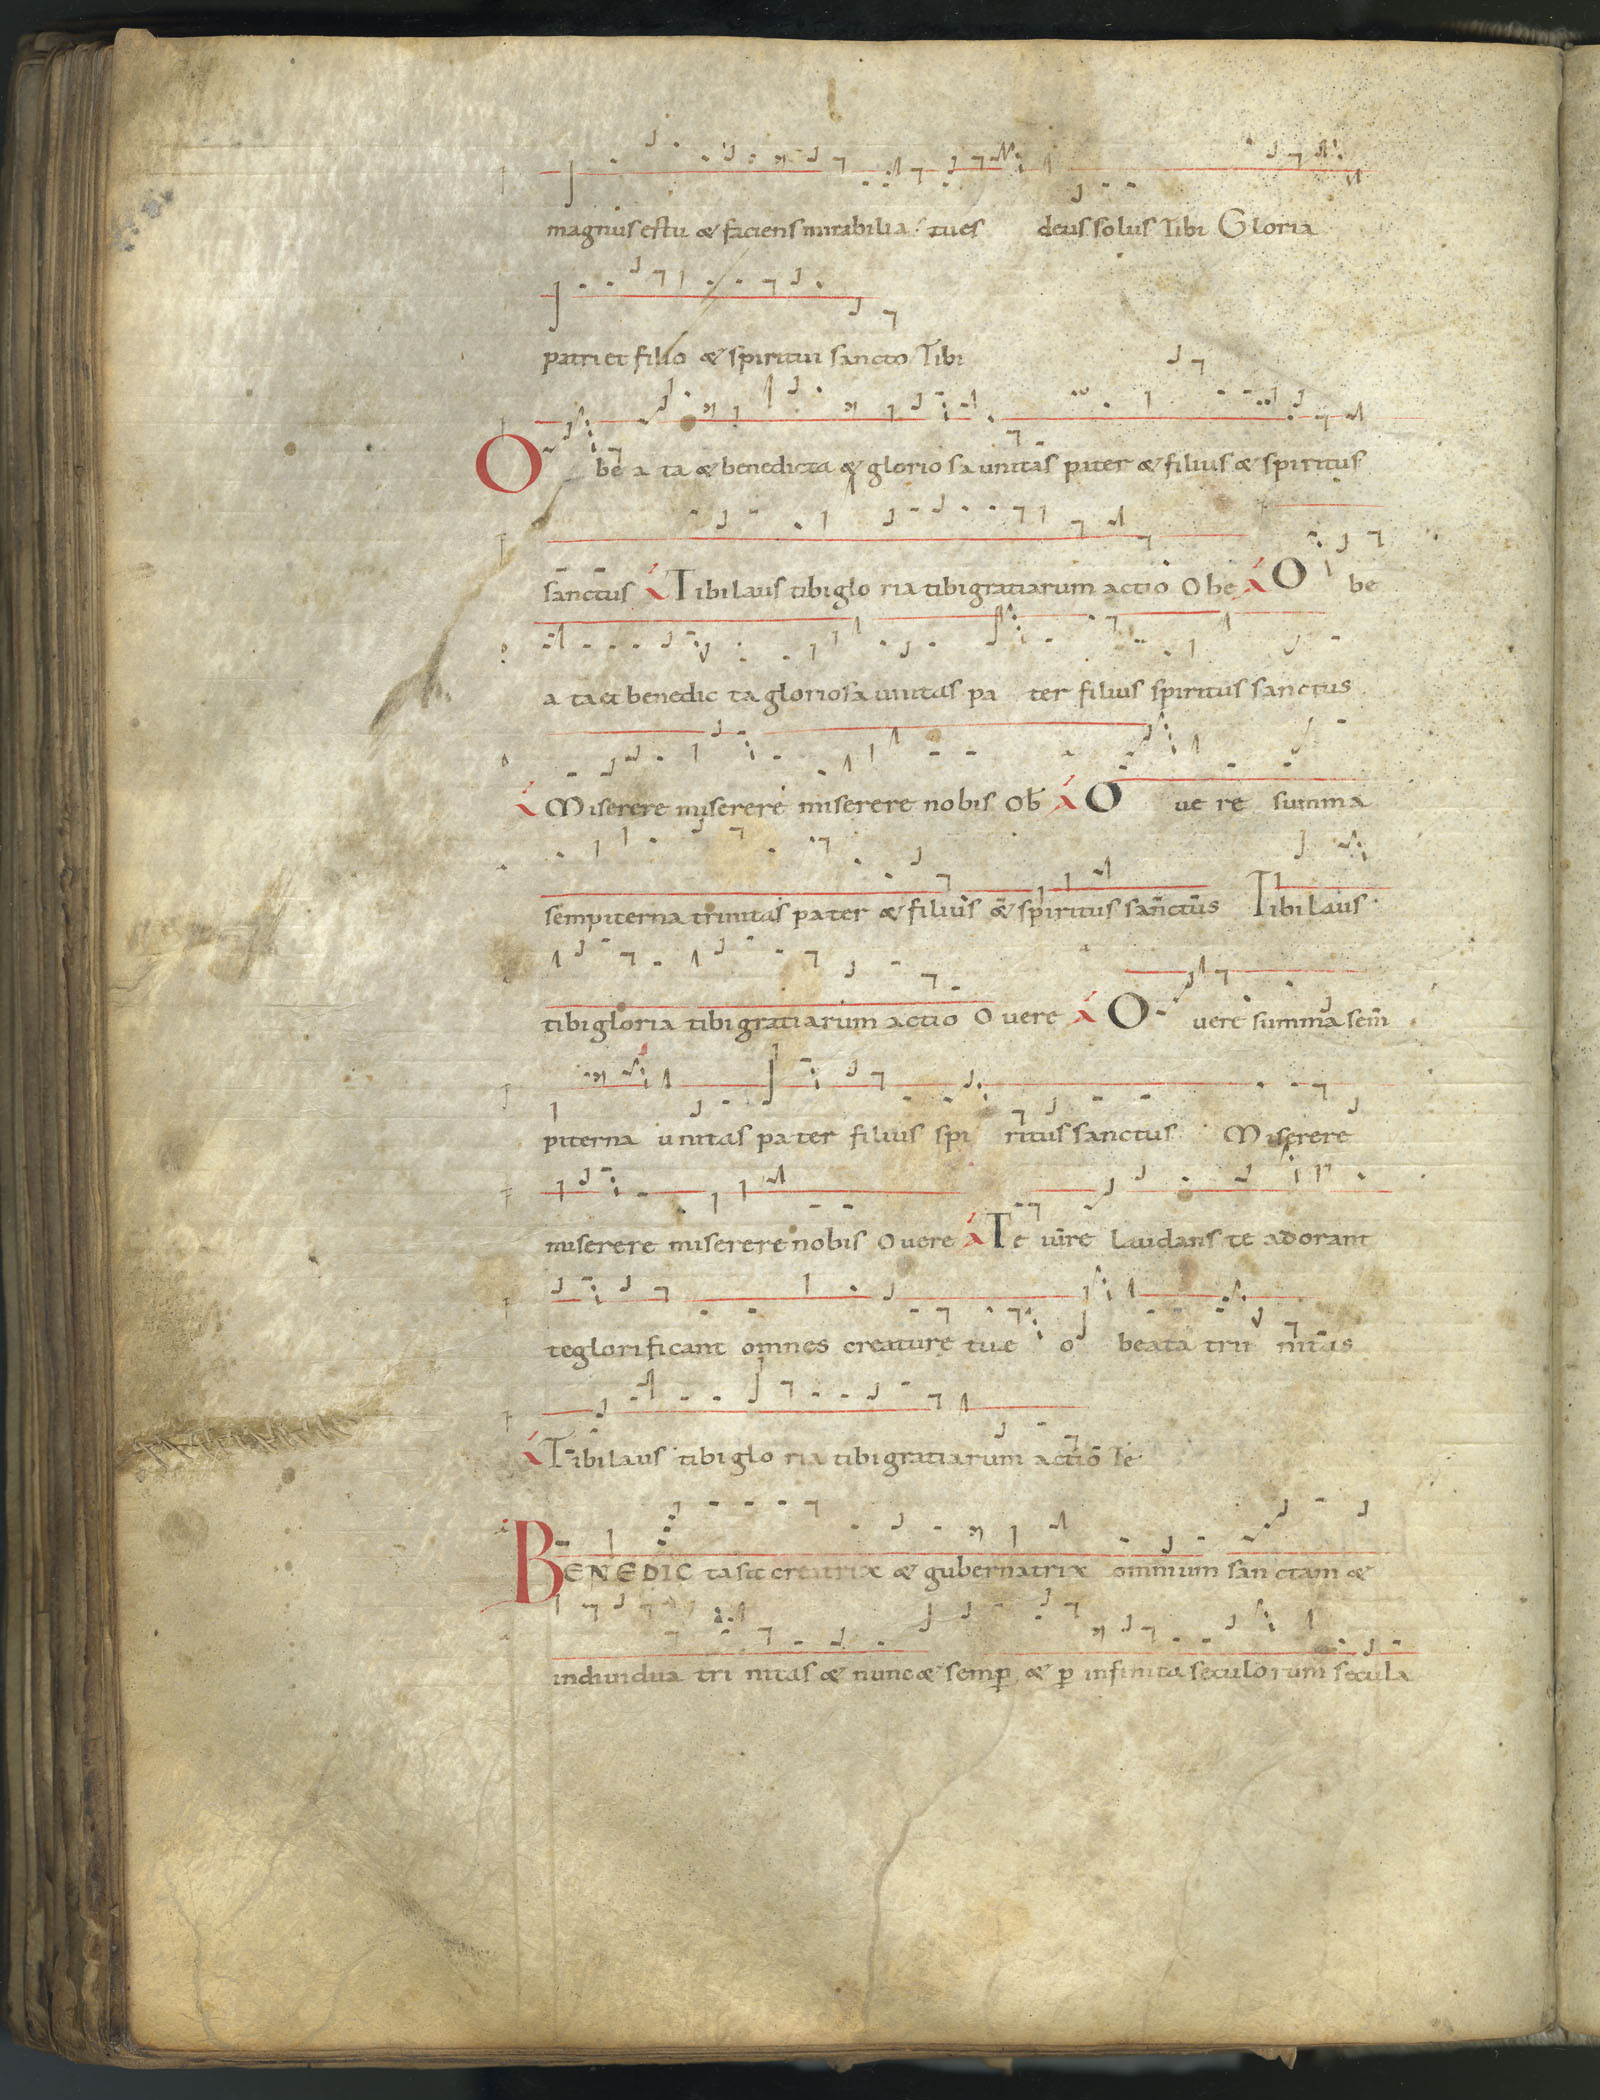 magnus es tu & faciens mirabilia tu es deus solus Tibi Gloria
patri et filio & spiritui sancto Tibi
O be a ta & benedicta & glorio sa unitas pater & filius & spiritus
sanctus A Tibi laus tibi glo ria tibi gratiarum actio O be A O be
a ta et benedic ta gloriosa unitas pa ter filius spiritus sanctus
A Miserere miserere miserere nobis Ob A O ue re summa
sempiterna trinitas pater & filius & spiritus sanctus Tibi laus
tibi gloria tibi gratiarum actio O uere A O uere summa sem
piterna unitas pater filius spi ritus sanctus Miserere
miserere miserere nobis O uere A Te iure Laudant te adorant
te glorificant omnes creature tue o beata tri nitas
A Tibi laus tibi glo ria tibi gratiarum actio Te
BENEDIC ta sit creatrix & gubernatrix omnium san ctam &
indiuidua tri nitas & nunc & semp & p infinita seculorum secula